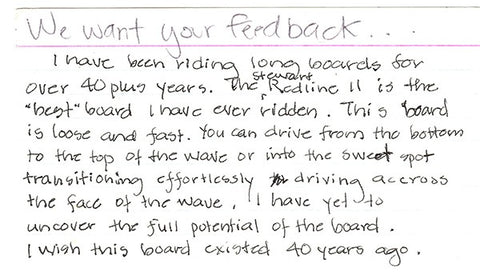 We want your feedback...
I have been riding long boards for
over 40 plus years. The Stewart Redline 11 is the
"best" board I have ever ridden. This board
is loose and fast. You can drive from the bottom
to the top of the wave or into the sweet spot
transitioning effortlessly driving accross
the face of the wave. I have yet to
uncover the full potential of the board.
I wish this board existed 40 years ago.